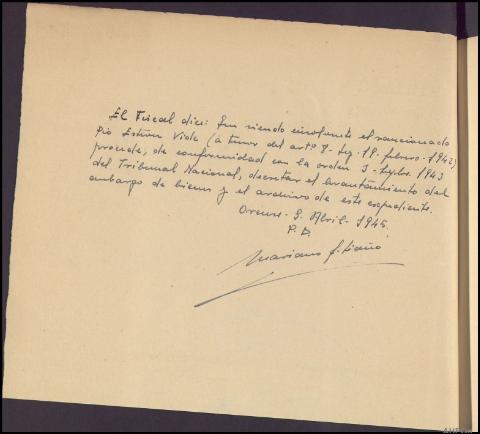 El Fiscal dice: Que siendo insolvente el sancionado
Pío Estévez Vide (a tenor del artº 8- Ley. 19. febrero. 1942)
procede, de conformidad con la orden 3- Sepbre. 1943
del Tribunal Nacional, decretar el levantamiento del
embargo de bienes y el archivo de este expediente.
Orense- 9. Abril- 1945.
P. D.
Mariano